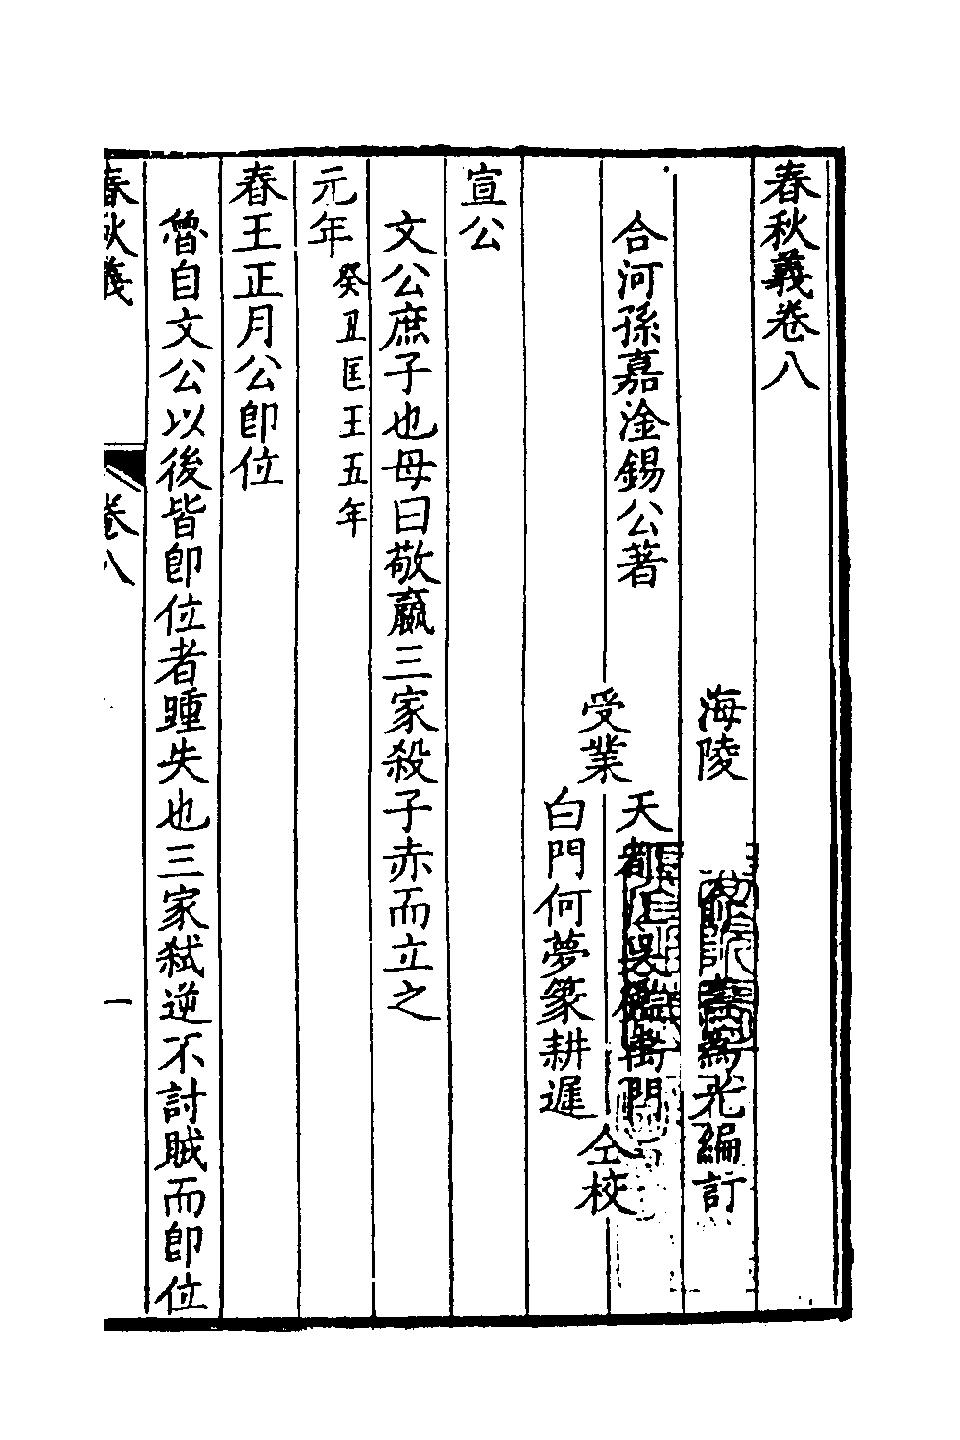 春秋義卷八
海陵
為光編訂
合河孫嘉淦錫公著
受業
天都
門
白門何夢篆耕遲
仝校
宣公
文公庶子也母曰敬嬴三家殺子赤而立之
元年癸丑匡王五年
春王正月公卽位
魯自文公以後皆卽位者踵失也三家弒逆不討賊而卽位
春秋義
卷八
一